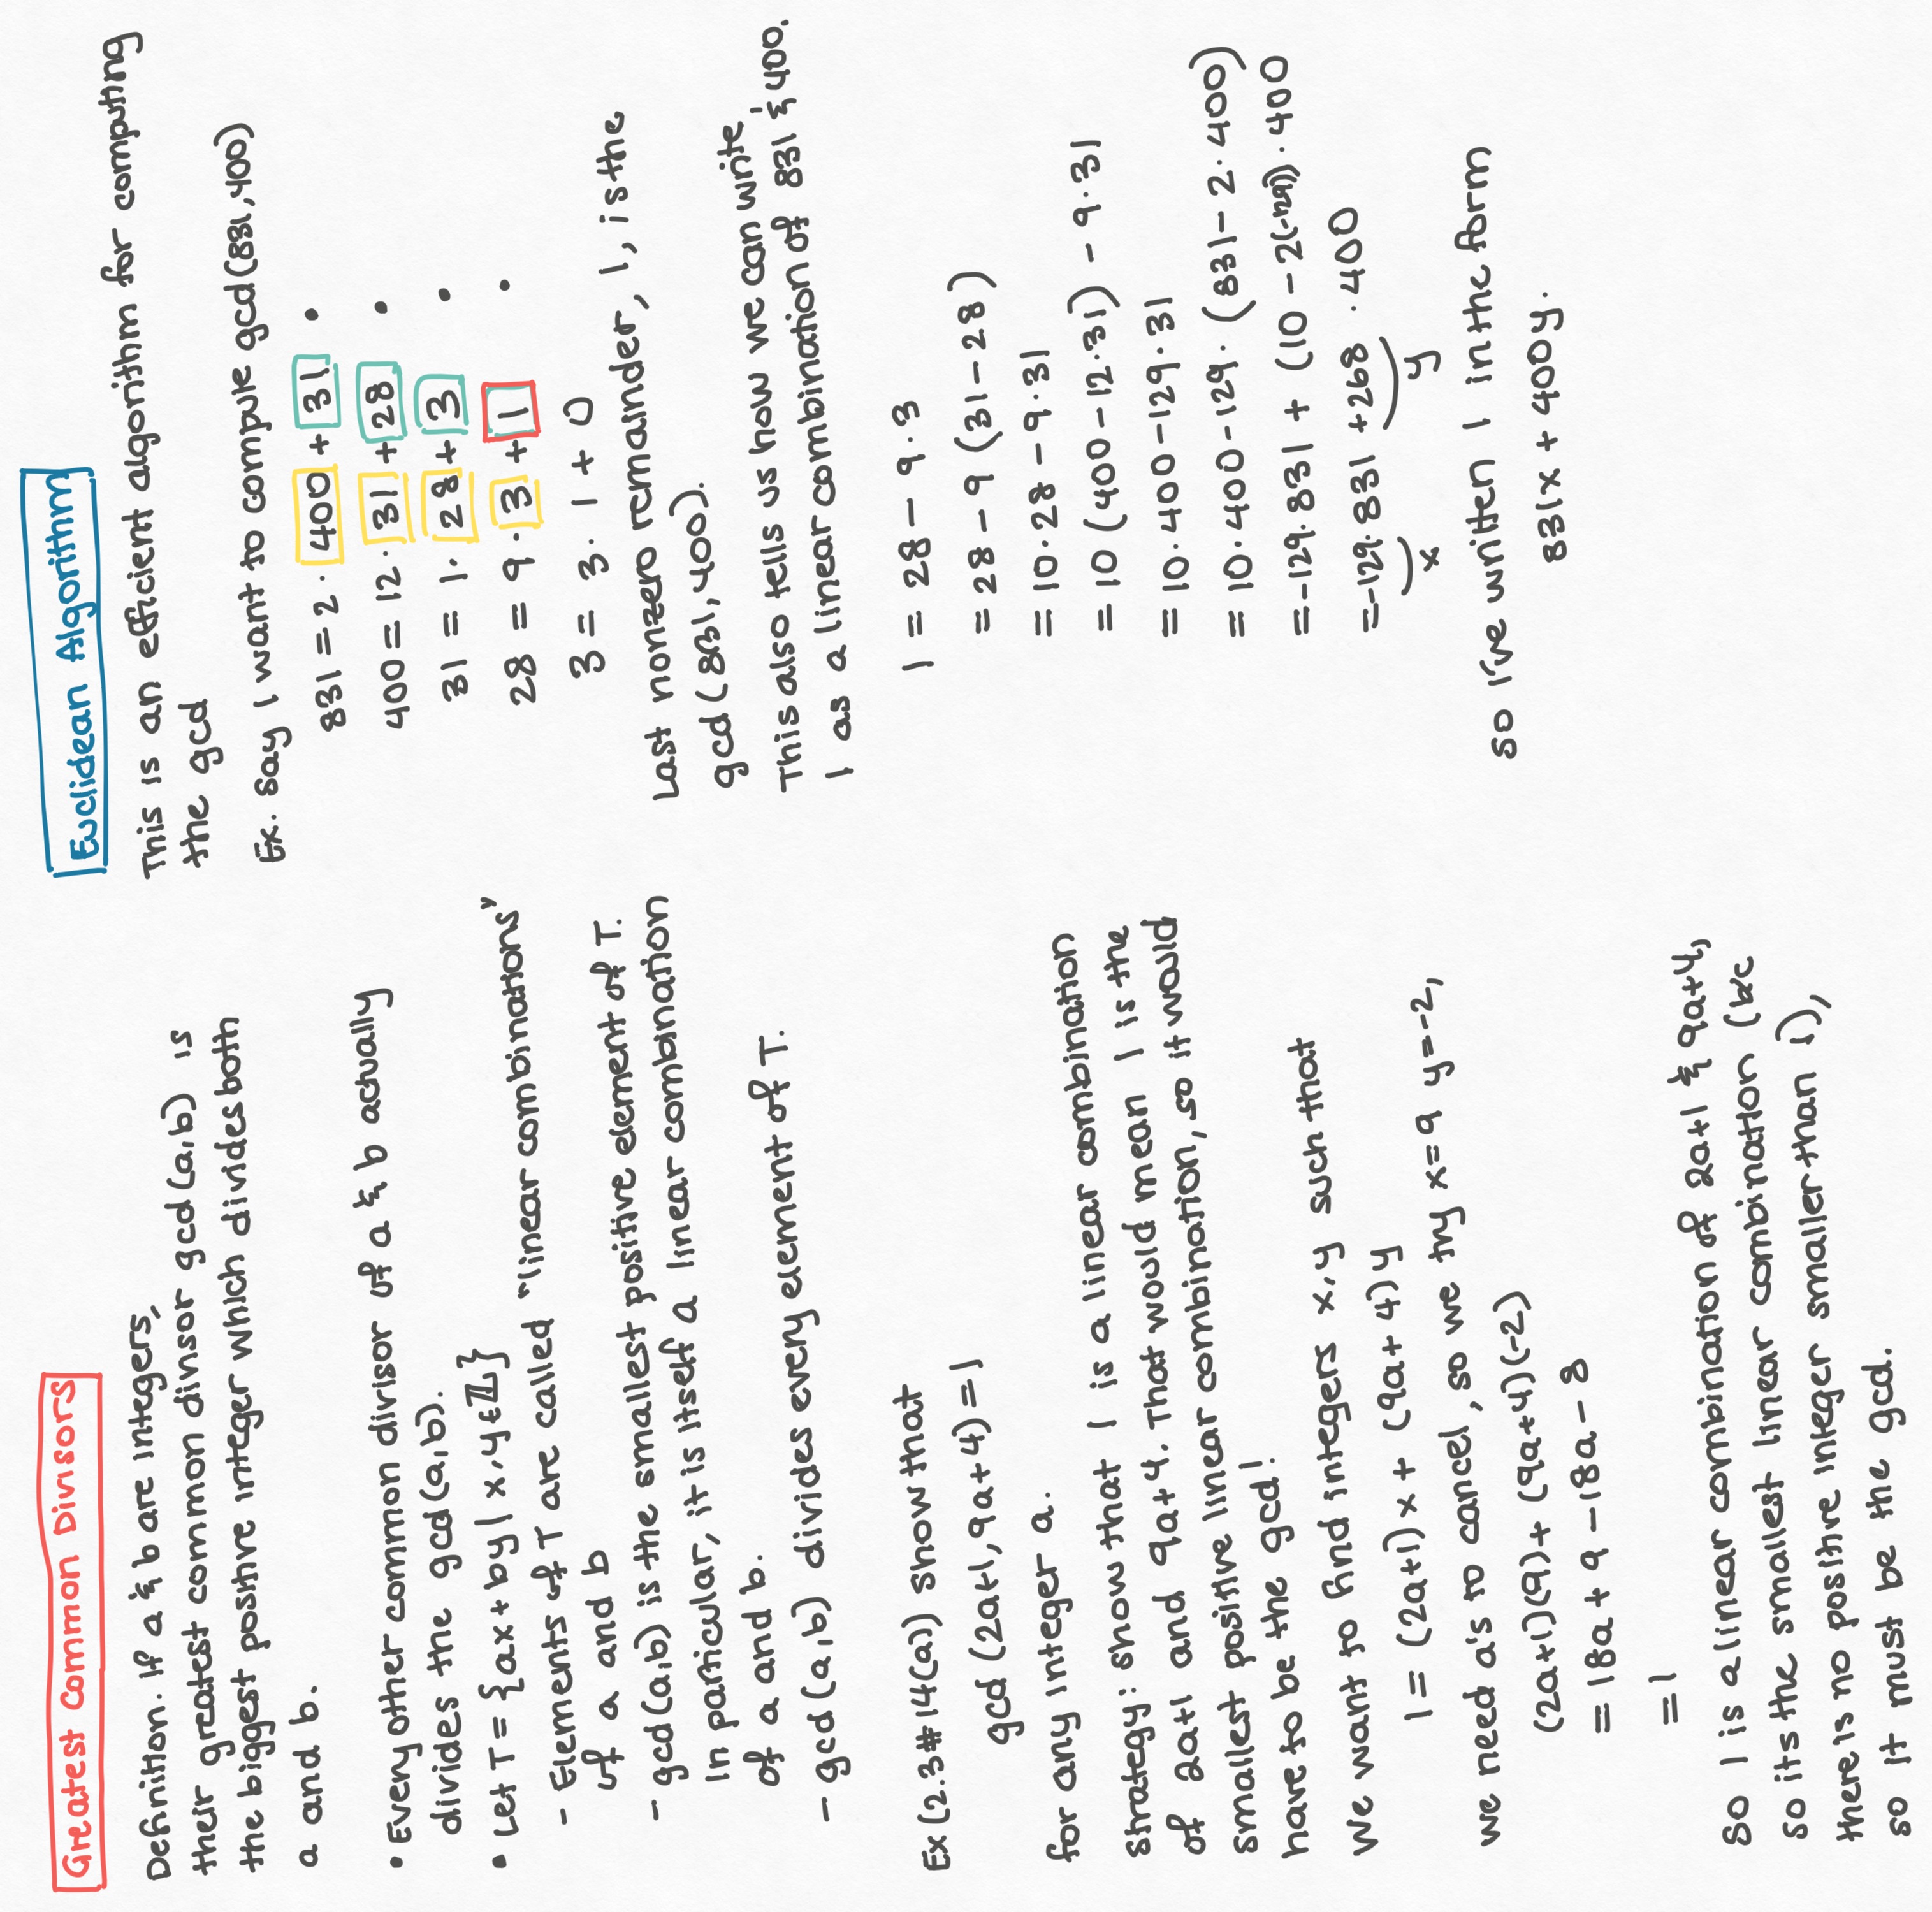 Greatest Common Divisors
Definition. If a & b are integers,
their greatest common divisor gcd(a,b) is
the biggest positive integer which divides both
a and b.
• Every other common divisor of a & b actually
divides the gcd(a,b).
• Let T = {ax + by | x,y ∈ ℤ}
- Elements of T are called "linear combinations"
of a and b
- gcd(a,b) is the smallest positive element of T.
In particular, it is itself a linear combination
of a and b.
- gcd(a,b) divides every element of T.
Ex (2.3#14(a)) Show that
gcd (2a+1, 9a+4) = 1
for any integer a.
Strategy: show that 1 is a linear combination
of 2a+1 and 9a+4. That would mean 1 is the
smallest positive linear combination, so it would
have to be the gcd!
We want to find integers x,y such that
1 = (2a+1)x + (9a+4)y
we need a's to cancel, so we try x=9 y=-2,
(2a+1)(9) + (9a+4)(-2)
= 18a + 9 - 18a - 8
= 1
So 1 is a linear combination of 2a+1 & 9a+4,
so its the smallest linear combination (b/c
there is no positive integer smaller than 1),
so it must be the gcd.
Euclidean Algorithm
This is an efficient algorithm for computing
the gcd
Ex. Say I want to compute gcd(831,400)
831 = 2 · 400 + 31 •
400 = 12 · 31 + 28 •
31 = 1 · 28 + 3 •
28 = 9 · 3 + 1 •
3 = 3 · 1 + 0
Last nonzero remainder, 1, is the
gcd (831,400).
This also tells us how we can write
1 as a linear combination of 831 & 400.
1 = 28 - 9 · 3
= 28 - 9 (31 - 28)
= 10 · 28 - 9 · 31
= 10 (400 - 12 · 31) - 9 · 31
= 10 · 400 - 129 · 31
= 10 · 400 - 129 · (831 - 2 · 400)
= -129 · 831 + (10 - 2(-129)) · 400
= -129 · 831 + 268 · 400
x y
So I've written 1 in the form
831x + 400y.